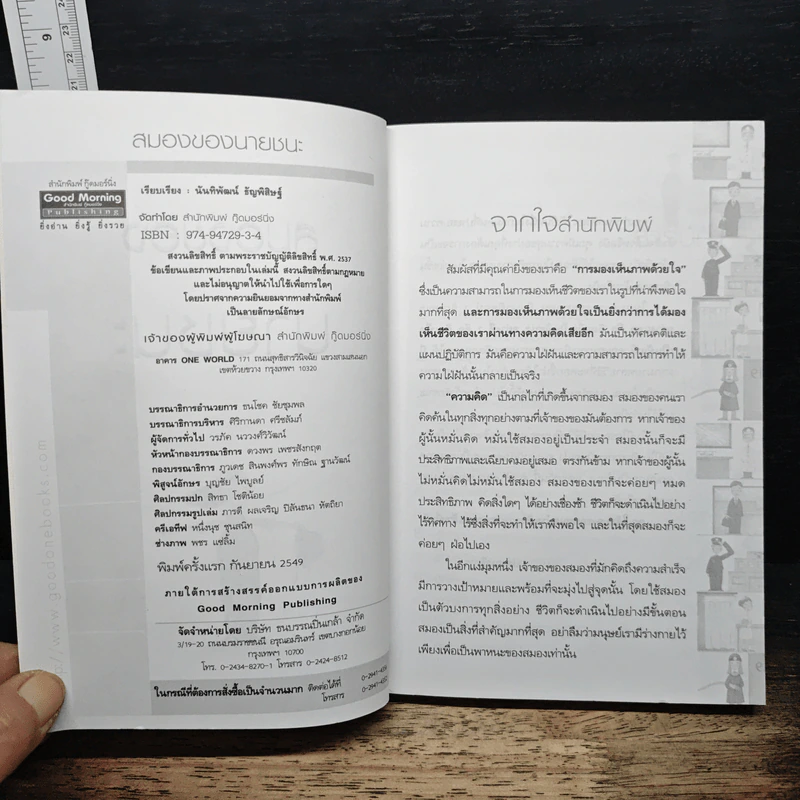 สมองของนายชนะ
สำนักพิมพ์ กู๊ดมอร์นิ่ง
Good Morning
สำนักพิมพ์ กู๊ดมอร์นิ่ง
Publishing
ยิ่งอ่าน ยิ่งรู้ ยิ่งรวย
เรียบเรียง : นันทิพัฒน์ ธัญพิสิษฐ์
จัดทำโดย สำนักพิมพ์ กู๊ดมอร์นิ่ง
ISBN : 974-94729-3-4
สงวนลิขสิทธิ์ ตามพระราชบัญญัติลิขสิทธิ์ พ.ศ. 2537
ข้อเขียนและภาพประกอบในเล่มนี้ สงวนลิขสิทธิ์ตามกฎหมาย
และไม่อนุญาตให้นำไปใช้เพื่อการใดๆ
โดยปราศจากความยินยอมจากทางสำนักพิมพ์
เป็นลายลักษณ์อักษร
เจ้าของผู้พิมพ์ผู้โฆษณา สำนักพิมพ์ กู๊ดมอร์นิ่ง
อาคาร ONE WORLD 171 ถนนสุทธิสารวินิจฉัย แขวงสามเสนนอก
เขตห้วยขวาง กรุงเทพฯ 10320
บรรณาธิการอำนวยการ ธนโชค ชัยชุมพล
บรรณาธิการบริหาร ศิริกานดา ศรีชลัมภ์
ผู้จัดการทั่วไป วรภัค นววงศ์วิวัฒน์
หัวหน้ากองบรรณาธิการ ดวงพร เพชรสังกฤต
กองบรรณาธิการ ภูวเดช สินพงศ์พร ทักษิณ ฐานวัฒน์
พิสูจน์อักษร บุญชัย ไพบูลย์
ศิลปกรรมปก สิทธา โชติน้อย
ศิลปกรรมรูปเล่ม ภารดี ผลเจริญ ปิลันธนา หัตถิยา
ครีเอทีฟ หนึ่งนุช ชูนสนิท
ช่างภาพ พชร แซ่ลิ้ม
พิมพ์ครั้งแรก กันยายน 2549
ภายใต้การสร้างสรรค์ออกแบบการผลิตของ
Good Morning Publishing
จัดจำหน่ายโดย บริษัท ธนบรรณปิ่นเกล้า จำกัด
3/19-20 ถนนบรมราชชนนี อรุณอมรินทร์ เขตบางกอกน้อย
กรุงเทพฯ 10700
โทร. 0-2434-8270-1 โทรสาร 0-2424-8512
ในกรณีที่ต้องการสั่งซื้อเป็นจำนวนมาก ติดต่อได้ที่
โทรสาร
จากใจสำนักพิมพ์
สัมผัสที่มีคุณค่ายิ่งของเราคือ “การมองเห็นภาพด้วยใจ”
ซึ่งเป็นความสามารถในการมองเห็นชีวิตของเราในรูปที่น่าพึงพอใจ
มากที่สุด และการมองเห็นภาพด้วยใจเป็นยิ่งกว่าการได้มอง
เห็นชีวิตของเราผ่านทางความคิดเสียอีก มันเป็นทัศนคติและ
แผนปฏิบัติการ มันคือความใฝ่ฝันและความสามารถในการทำให้
ความใฝ่ฝันนั้นกลายเป็นจริง
“ความคิด” เป็นกลไกที่เกิดขึ้นจากสมอง สมองของคนเรา
คิดค้นในทุกสิ่งทุกอย่างตามที่เจ้าของของมันต้องการ หากเจ้าของ
ผู้นั้นหมั่นคิด หมั่นใช้สมองอยู่เป็นประจำ สมองนั้นก็จะมี
ประสิทธิภาพและเฉียบคมอยู่เสมอ ตรงกันข้าม หากเจ้าของผู้นั้น
ไม่หมั่นคิดไม่หมั่นใช้สมอง สมองของเขาก็จะค่อยๆ หมด
ประสิทธิภาพ คิดสิ่งใดๆ ได้อย่างเชื่องช้า ชีวิตก็จะดำเนินไปอย่าง
ไร้ทิศทาง ไร้ซึ่งสิ่งที่จะทำให้เราพึงพอใจ และในที่สุดสมองก็จะ
ค่อยๆ ฝ่อไปเอง
ในอีกแง่มุมหนึ่ง เจ้าของของสมองที่มักคิดถึงความสำเร็จ
มีการวางเป้าหมายและพร้อมที่จะมุ่งไปสู่จุดนั้น โดยใช้สมอง
เป็นตัวบงการทุกสิ่งอย่าง ชีวิตก็จะดำเนินไปอย่างมีขั้นตอน
สมองเป็นสิ่งที่สำคัญมากที่สุด อย่าลืมว่ามนุษย์เรามีร่างกายไว้
เพียงเพื่อเป็นพาหนะของสมองเท่านั้น